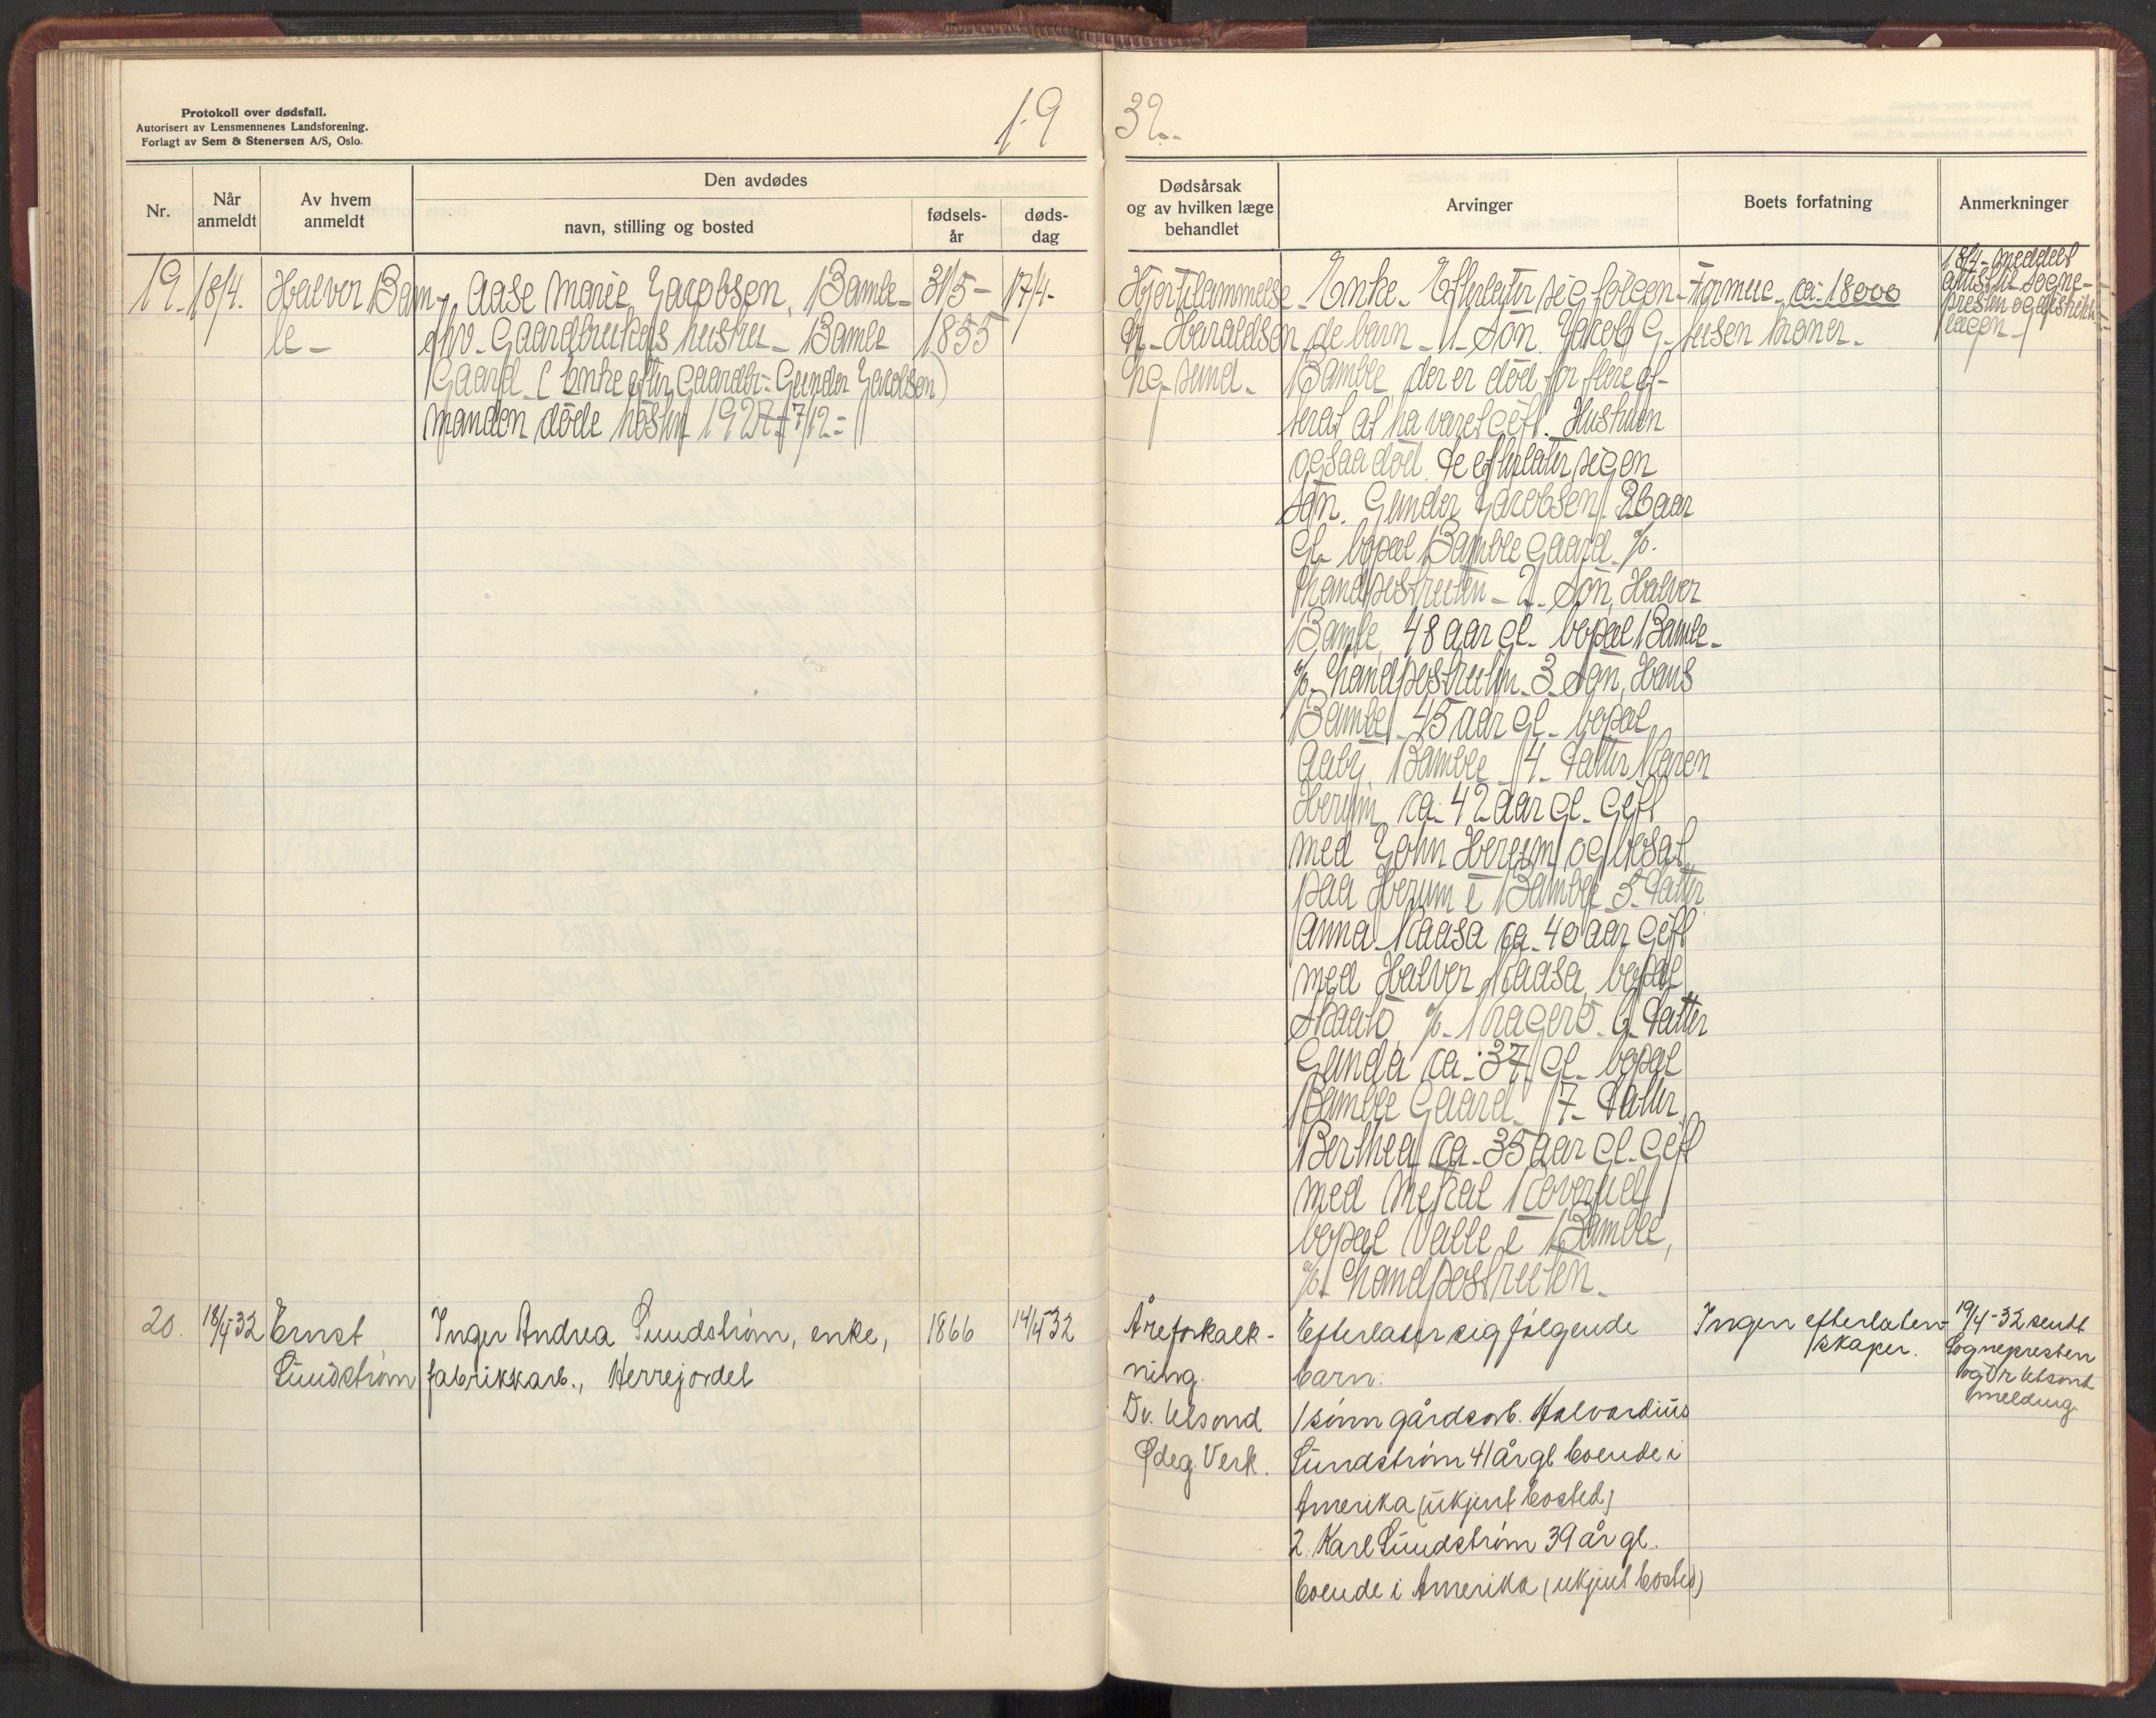 Protokoll over dødsfall.
Autorisert av Lensmennenes Landsforening.
Forlagt av Sem & Stenersen A/S, Oslo.
19
32
Nr.
Når anmeldt
Av hvem anmeldt
Den avdødes
navn, stilling og bosted
fødsels-
år
døds-
dag
Dødsårsak
og av hvilken læge
behandlet
Arvinger
Boets forfatning
Anmerkninger
19.
18/4.
Halver Bam-
le
Aase Marie Jacobsen, Bamle
Gaardbrukers hustru - Bamle
Gaard. (Enke efter Gaardbr. Gunder Jacobsen)
manden døde høsten 1927 - 7/12 -
31/5 -
1855
17/4 -
Hjertelammelse
dr. Haraldsen
Lg.sund.
Enke. Efterlater sig følgen-
de barn - 1. Søn. Jakob G.
Bamble, der er død for flere
at ha været gift. Hustruen
ogsaa død. De efterlater sig en
Søn. Gunder Jacobsen, 26 aar
gl. bopæl Bamble Gaard p/.
Landpostruten - 2. Søn, Halver
Bamle, 48 aar gl. bopæl Bamle -
p/. Landpostruten. 3. Søn, Hans
Bamble, 45 aar gl. bopæl
Aaby. Bamble. 4. Datter Maren
Herum, ca. 42 aar gl. Gift
med John Herum og bosat
paa Herum i Bamble 5. Datter
Anna Kaasa ca. 40 aar Gift
med Halvor Kaasa, bopæl
Skaatø, p/. Kragerø. 6. Datter
Gunda ca. 37 gl. bopæl
Bamble Gaard. 7. Datter
Berthea ca. 35 aar gl. Gift
med
bopæl Valle i Bamble,
p/. Landpostruten.
Formue ca. 18000
tusen kroner.
18/4 - meddelt
sogne-
presten og distrikts
lægen
20.
18/4-32
Ernst
Sundstrøm
Inger Andrea Sundstrøm, enke,
fabrikkarb., Herrejordet
1866
14/4-32
Åreforkalk-
ning.
Dr. Ulsond
Ødeg. Verk.
Efterlater sig følgende
barn:
1 sønn gårdsarb. Halvardius
Sundstrøm 41 år gl boende i
Amerika (ukjent bosted)
2. Karl Sundstrøm 39 år gl.
boende i Amerika (ukjent bosted)
Ingen efterlaten-
skaper.
19/4-32 sendt
Sognepresten
og Dr Ulsond
melding.